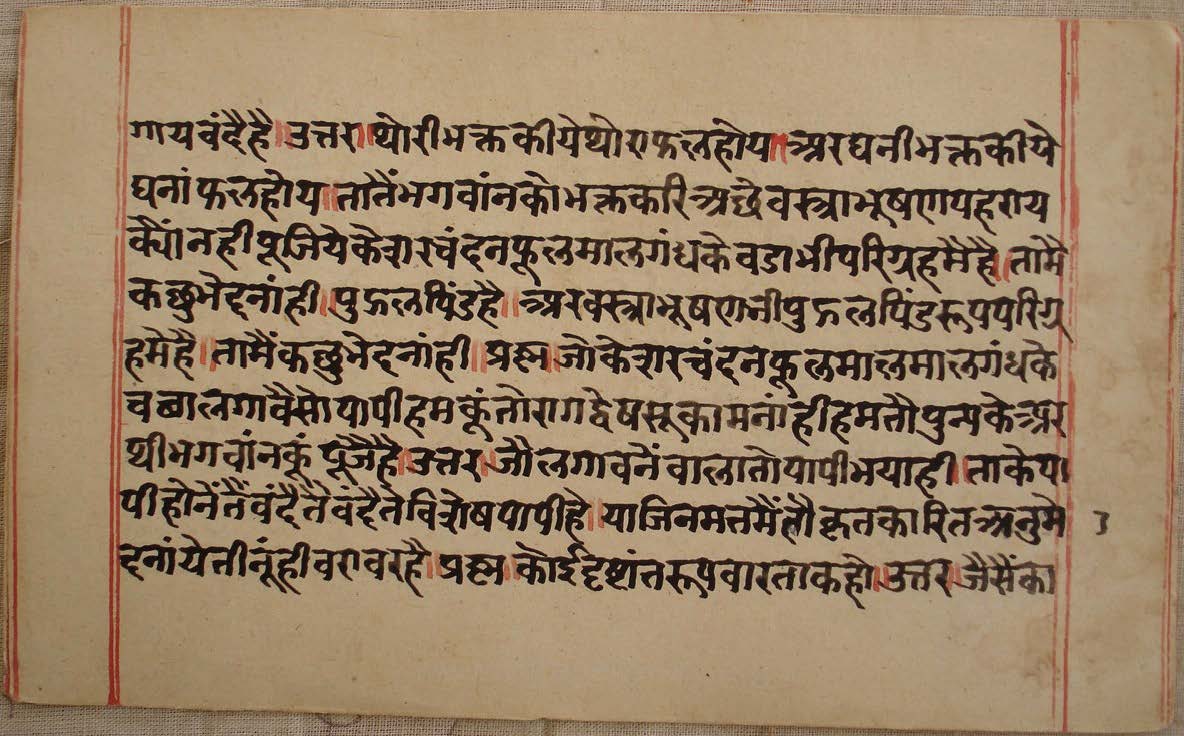 गायवंदैहै॥उत्तर॥थोरीभक्तकीयेथोराफलहोय॥अरघनीभक्तकीये
घनांफलहोय॥तातैंभगवांनकोभक्तकरिअछेवस्त्राभूषणपहराय
क्यौंनहीपूजियेकेशरचंदनफूलमालगंधकेवडाभीपरिग्रहमैहै॥तामै
कछुभेदनांही॥पुद्गलपिंडहै॥अरवस्त्राभूषणभीपुद्गलपिंडरूपपरिग्र
हमेहै॥तामैंकछुभेदनांही॥प्रश्न॥जोकेशरचंदनफूलमालमालगंधके
वडालगावैसोपापीहमकूंतोरागद्वेषसूकामनांहीहमतौपुन्यकेअर
थीभगवांनकुंपूजैहै॥उत्तर॥जौलगावनैंवालातोपापीभयाही॥ताकेपा
पीहोनेंतैंवंदैतैवंदैतेविशेषपापीहै॥याजिनमतमैंतौकृतकारितअनुमो
३
दनांयेतीनूंहीवरावरहै॥प्रश्न॥कोईदृष्टांतरूपवारताकहो॥उत्तर॥जैसैंका